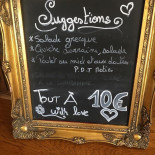 Suggestions
* Salade grecque
* Quiche Lorraine, salade
* Poulet au miel et aux
P.D.T
TOUT A 10€
with love